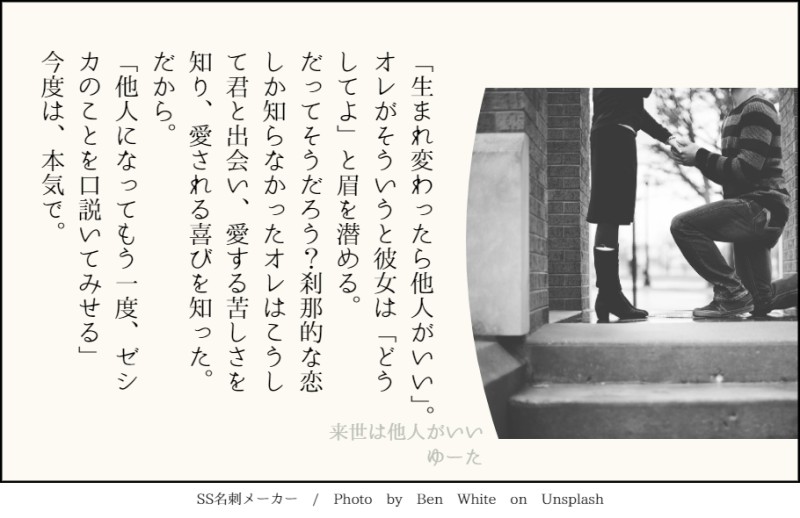 「生まれ変わったら他人がいい」。
オレがそういうと彼女は「どう
してよ」と眉を潜める。
だってそうだろう？刹那的な恋
しか知らなかったオレはこうし
て君と出会い、愛する苦しさを
知り、愛される喜びを知った。
だから。
「他人になってもう一度、ゼシ
カのことを口説いてみせる」
今度は、本気で。
来世は他人がいい
ゆーた
SS名刺メーカー / Photo by Ben White on Unsplash